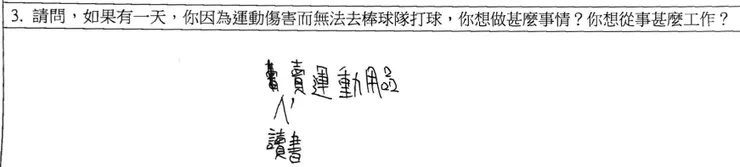 3. 請問，如果有一天，你因為運動傷害而無法去棒球隊打球，你想做甚麼事情？你想從事甚麼工作？
賣運動用品
讀書